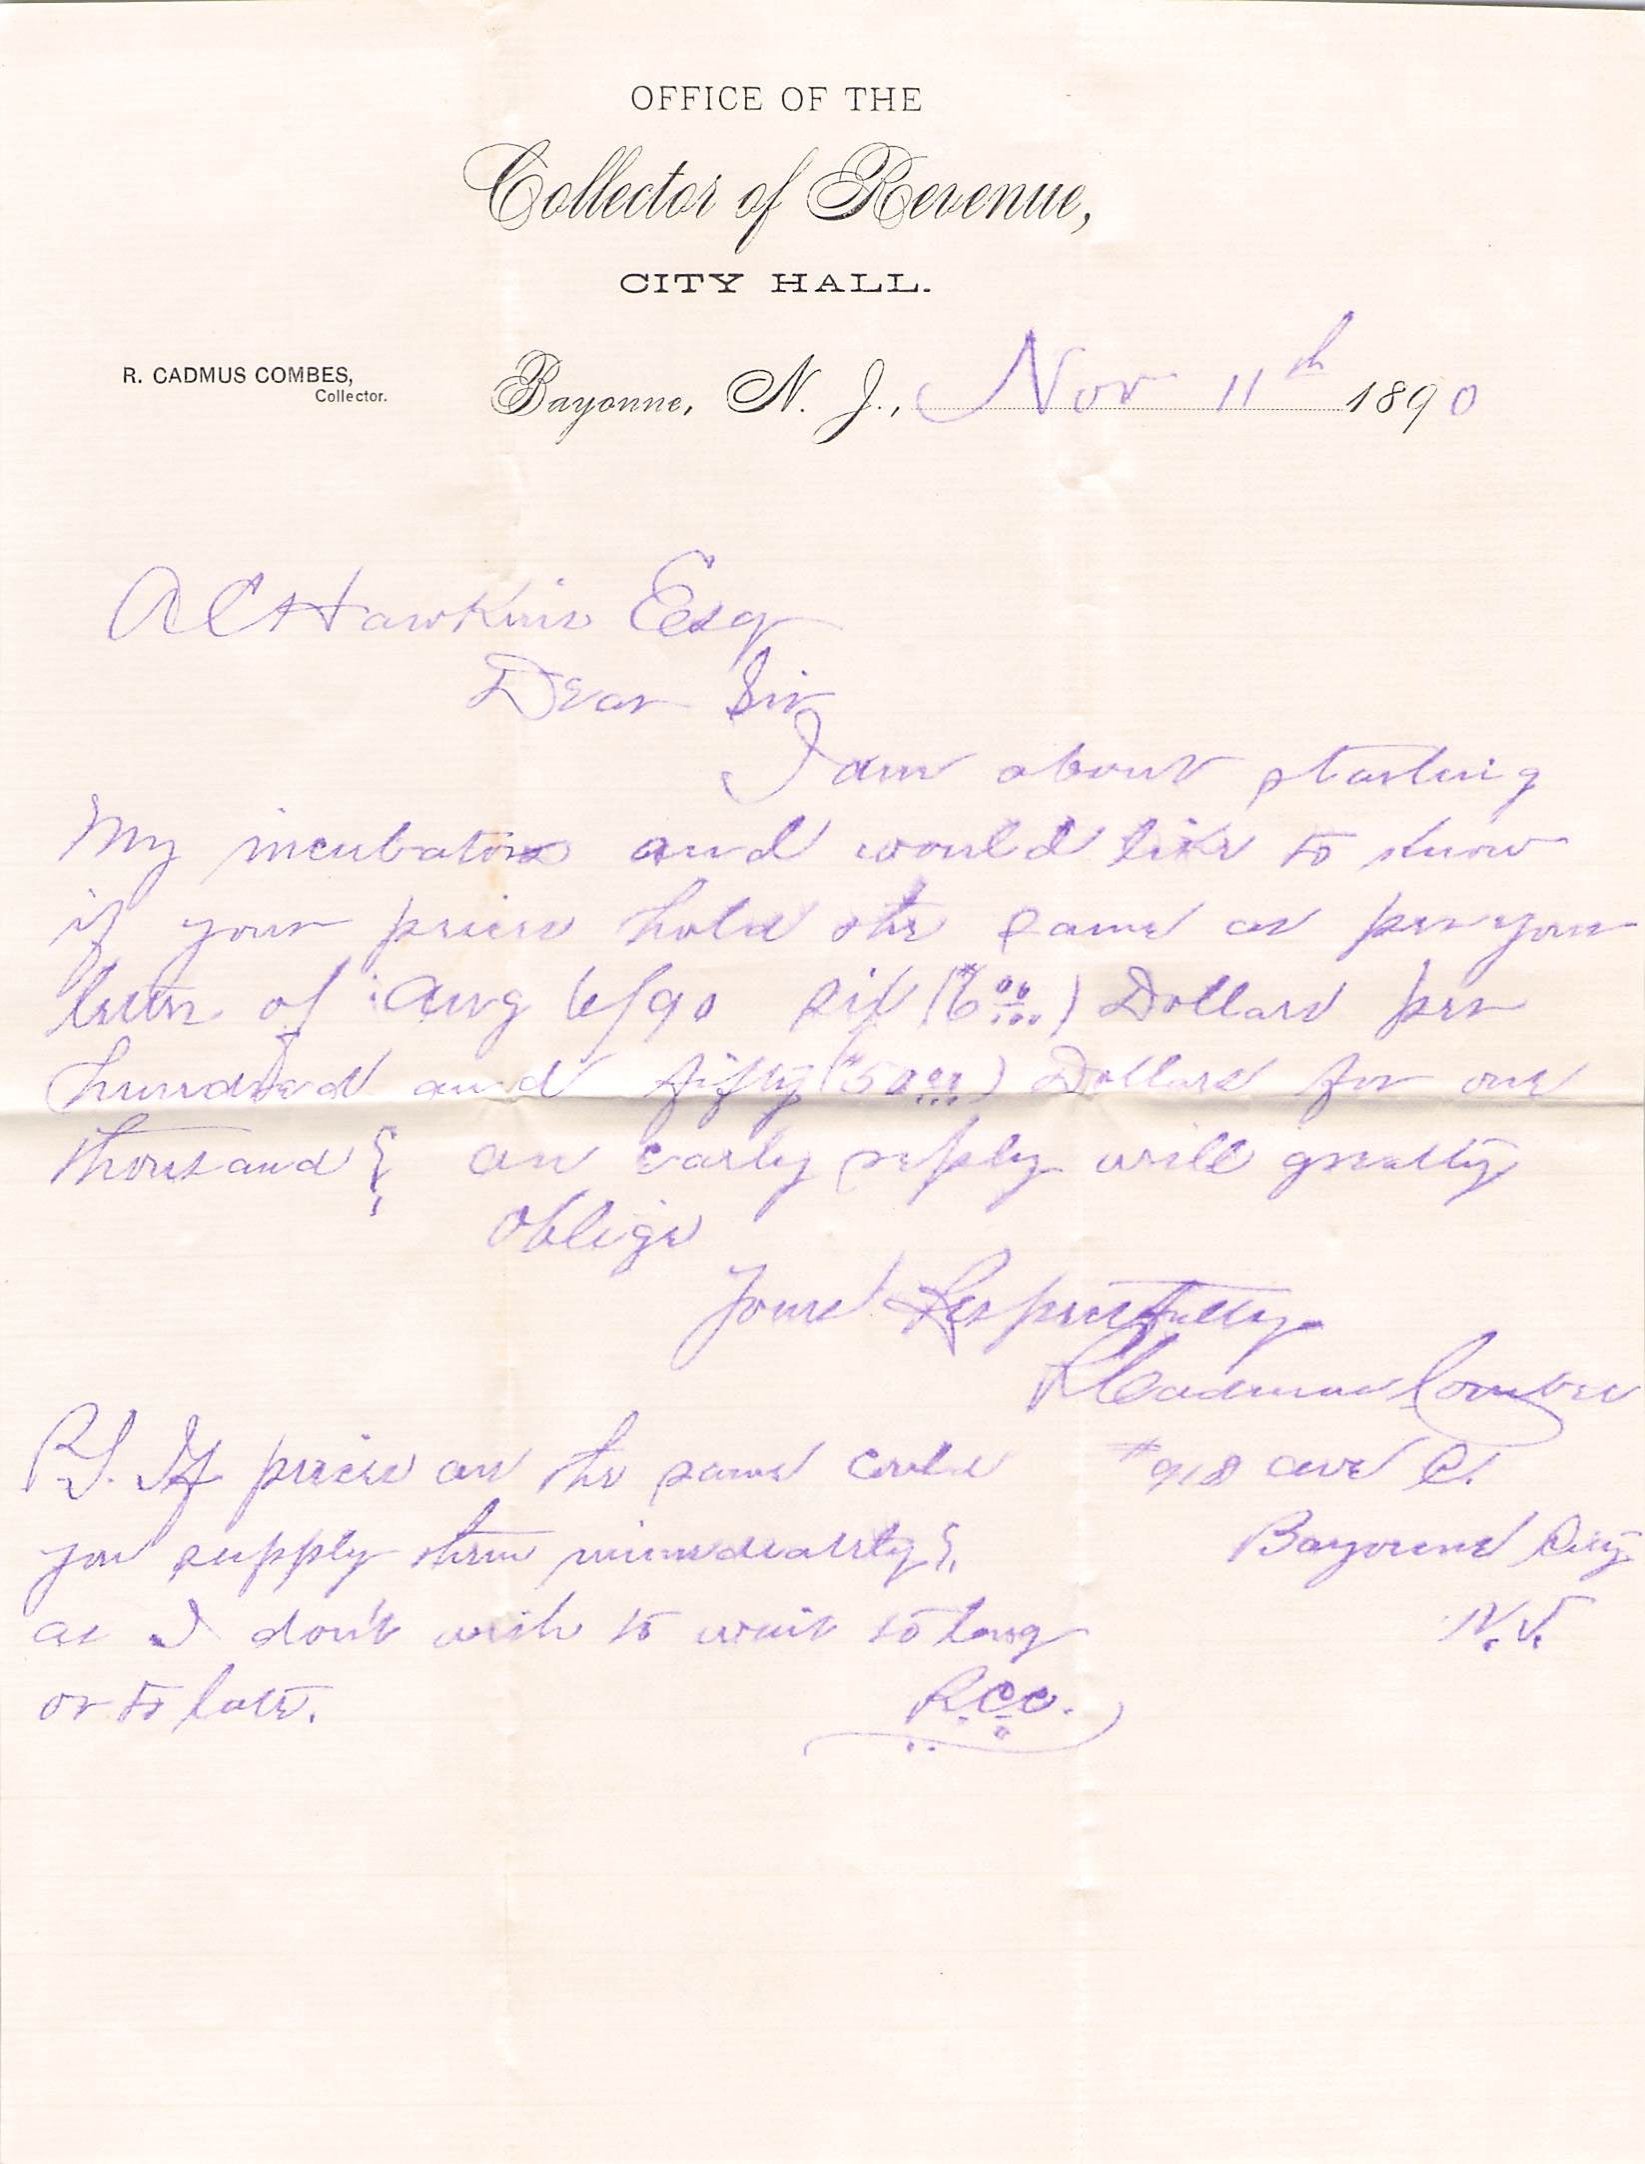 OFFICE OF THE
Collector of Revenue,
CITY HALL.
R. CADMUS COMBES,
Collector.
Bayonne, N. J., Nov 11th 1890
A C Hawkins Esq
Dear Sir
I am about starting
My incubators and would like to know
if your prices hold the same as per your
letter of Aug 6/90 six ($6.00) Dollars per
hundred and fifty ($50.00) Dollars for one
thousand? an early reply will greatly
oblige
Yours Respectfully
R Cadmus Combes
P.S. If prices are the same could
#918 ave C.
you supply them immediately?
Bayonne City
as I don't wish to wait to long
N.J.
or to late.
R.C.C.